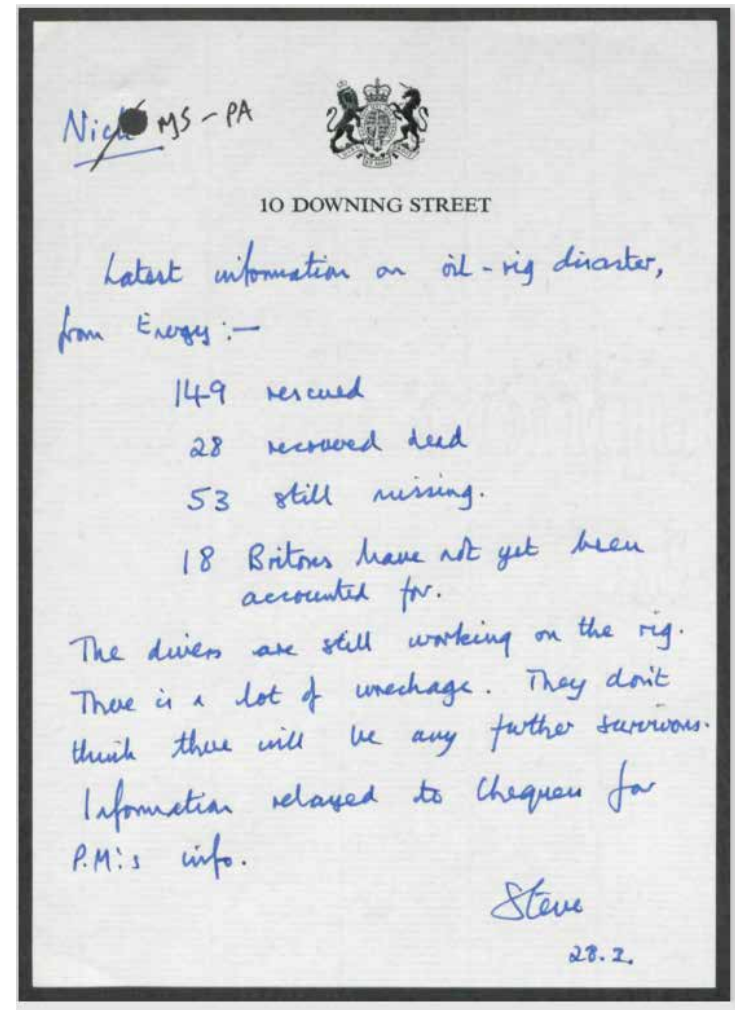 Nick MS - PA
10 DOWNING STREET
Latest information on oil-rig disaster,
from Energy:—
149 rescued
28 recovered dead
53 still missing.
18 Britons have not yet been
accounted for.
The divers are still working on the rig.
There is a lot of wreckage. They don't
think there will be any further survivors.
Information relayed to Chequers for
P.M.'s info.
Steve